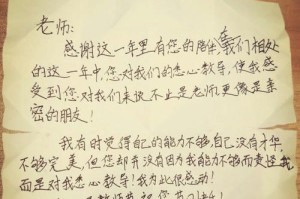 老师:
感谢这一年里有您的陪伴,我们相处
的这一年中,您对我们的悉心教导,使我感
受到您对我们来说不止是老师更像是亲
密的朋友!
我有时觉得自己的能力不够,自己没有才华,
不够完美,但您却并没有因为我能力不够而责怪我
而是对我悉心教导!我为此很感动!